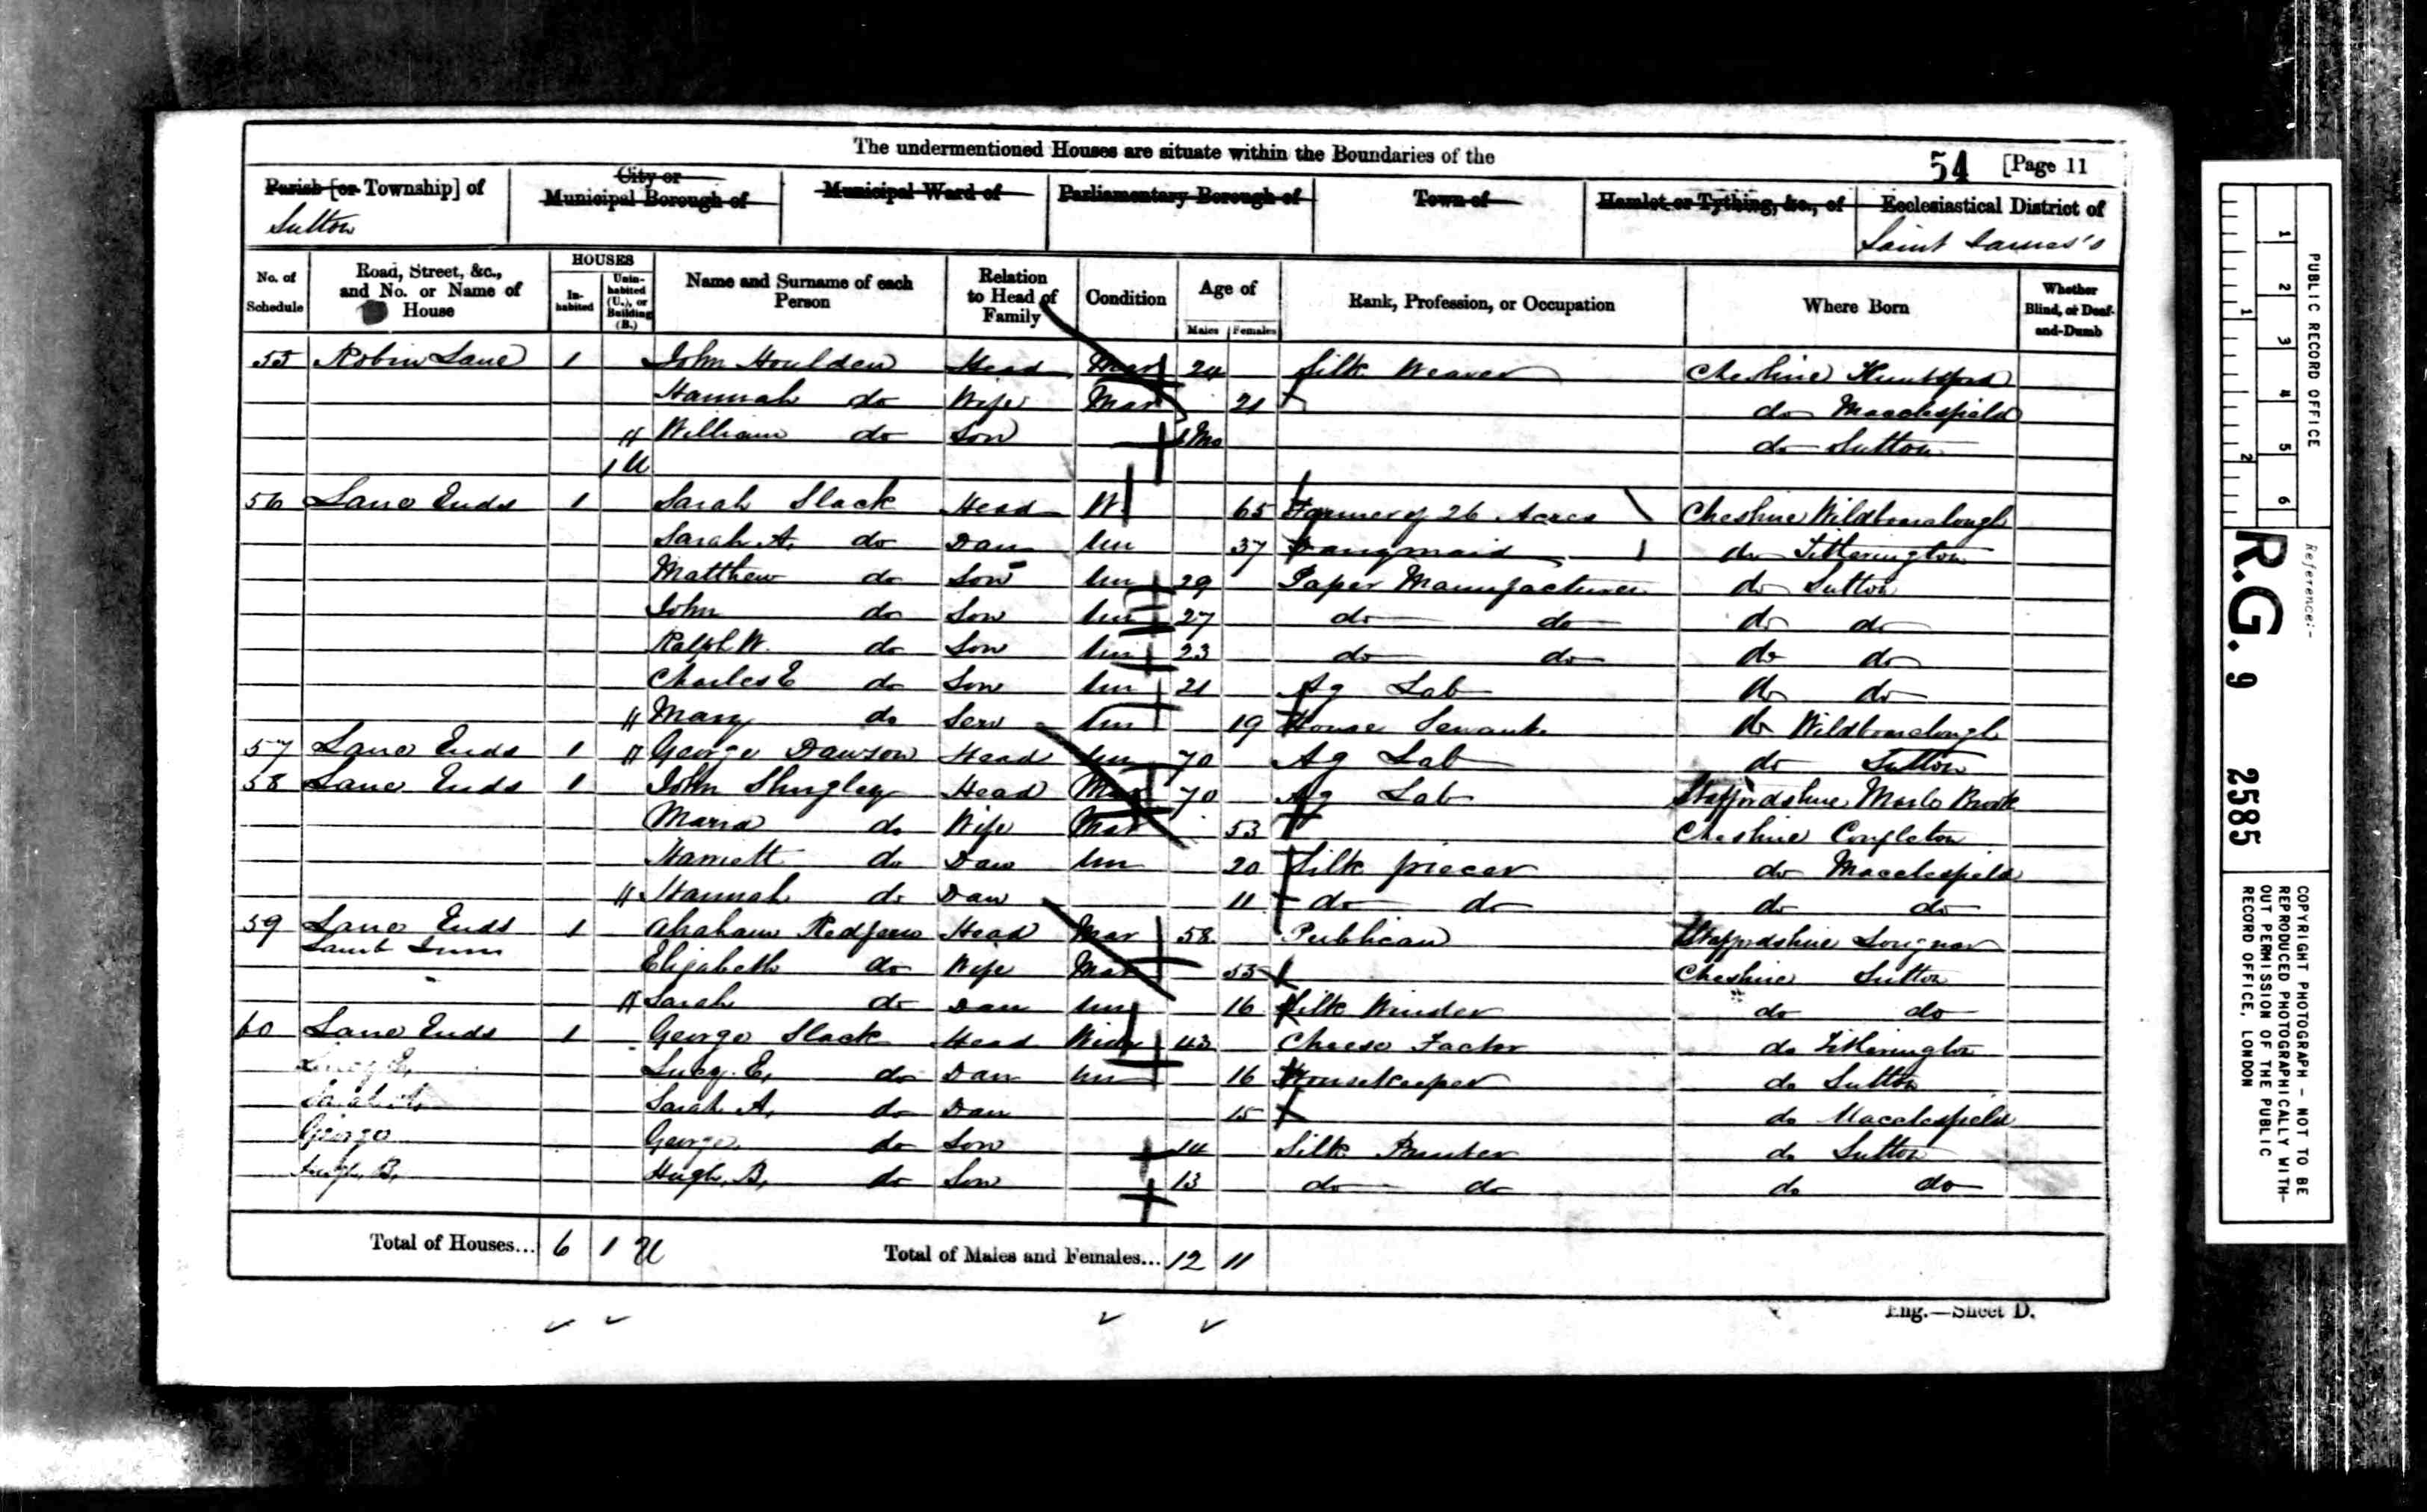 The undermentioned Houses are situate within the Boundaries of the
54 [Page 11
Parish [or Township] of
City or Municipal Borough of
Municipal Ward of
Parliamentary Borough of
Town of
Hamlet or Tything, &c., of
Ecclesiastical District of
Sutton
Saint James's
No. of Schedule
Road, Street, &c., and No. or Name of House
HOUSES
In-habited
Unin-habited (U.), or Building (B.)
Name and Surname of each Person
Relation to Head of Family
Condition
Age of
Males Females
Rank, Profession, or Occupation
Where Born
Whether Blind, or Deaf-and-Dumb
55 Robin Lane 1 John Houlden Head Mar 24 Silk Weaver Cheshire Knutsford
Hannah do Wife Mar 21 do Macclesfield
William do Son Mo do Sutton
1 U
56 Lane Ends 1 Sarah Slack Head W 65 Farmer of 26 Acres Cheshire Wildboarclough
Sarah A. do Dau Un 37 Dairymaid do Titherington
Matthew do Son Un 29 Paper Manufacturer do Sutton
John do Son Un 27 do do do do
Ralph W. do Son Un 23 do do do do
Charles E do Son Un 21 Ag Lab do do
Mary do Serv Un 19 House Servant do Wildboarclough
57 Lane Ends 1 George Dawson Head Un 70 Ag Lab do Sutton
58 Lane Ends 1 John Shugley Head Mar 70 Ag Lab Staffordshire Brook
Maria do Wife Mar 53 Cheshire Congleton
Harriett do Dau Un 20 Silk piecer do Macclesfield
Hannah do Dau 11 do do do do
59 Lane Ends 1 Abraham Redfern Head Mar 58 Publican Staffordshire Longnor
Lamb Inn
Elizabeth do Wife Mar 55 Cheshire Sutton
Sarah do Dau Un 16 Silk Winder do do
60 Lane Ends 1 George Slack Head Widr 43 Cheese Factor do Titherington
Lucy E. Lucy E. do Dau Un 16 Housekeeper do Sutton
Sarah A. Sarah A. do Dau 15 do Macclesfield
George George do Son 14 Silk Printer do Sutton
Hugh B. Hugh B. do Son 13 do do do do
Total of Houses... 6 1 U
Total of Males and Females... 12 11
Eng.—Sheet D.
PUBLIC RECORD OFFICE
1 2 3 4 5 6
1 2
Reference:-
R.G. 9 2585
COPYRIGHT PHOTOGRAPH - NOT TO BE
REPRODUCED PHOTOGRAPHICALLY WITH-
OUT PERMISSION OF THE PUBLIC
RECORD OFFICE, LONDON